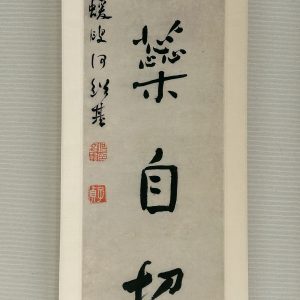 蘂自切
蝯叟何紹基